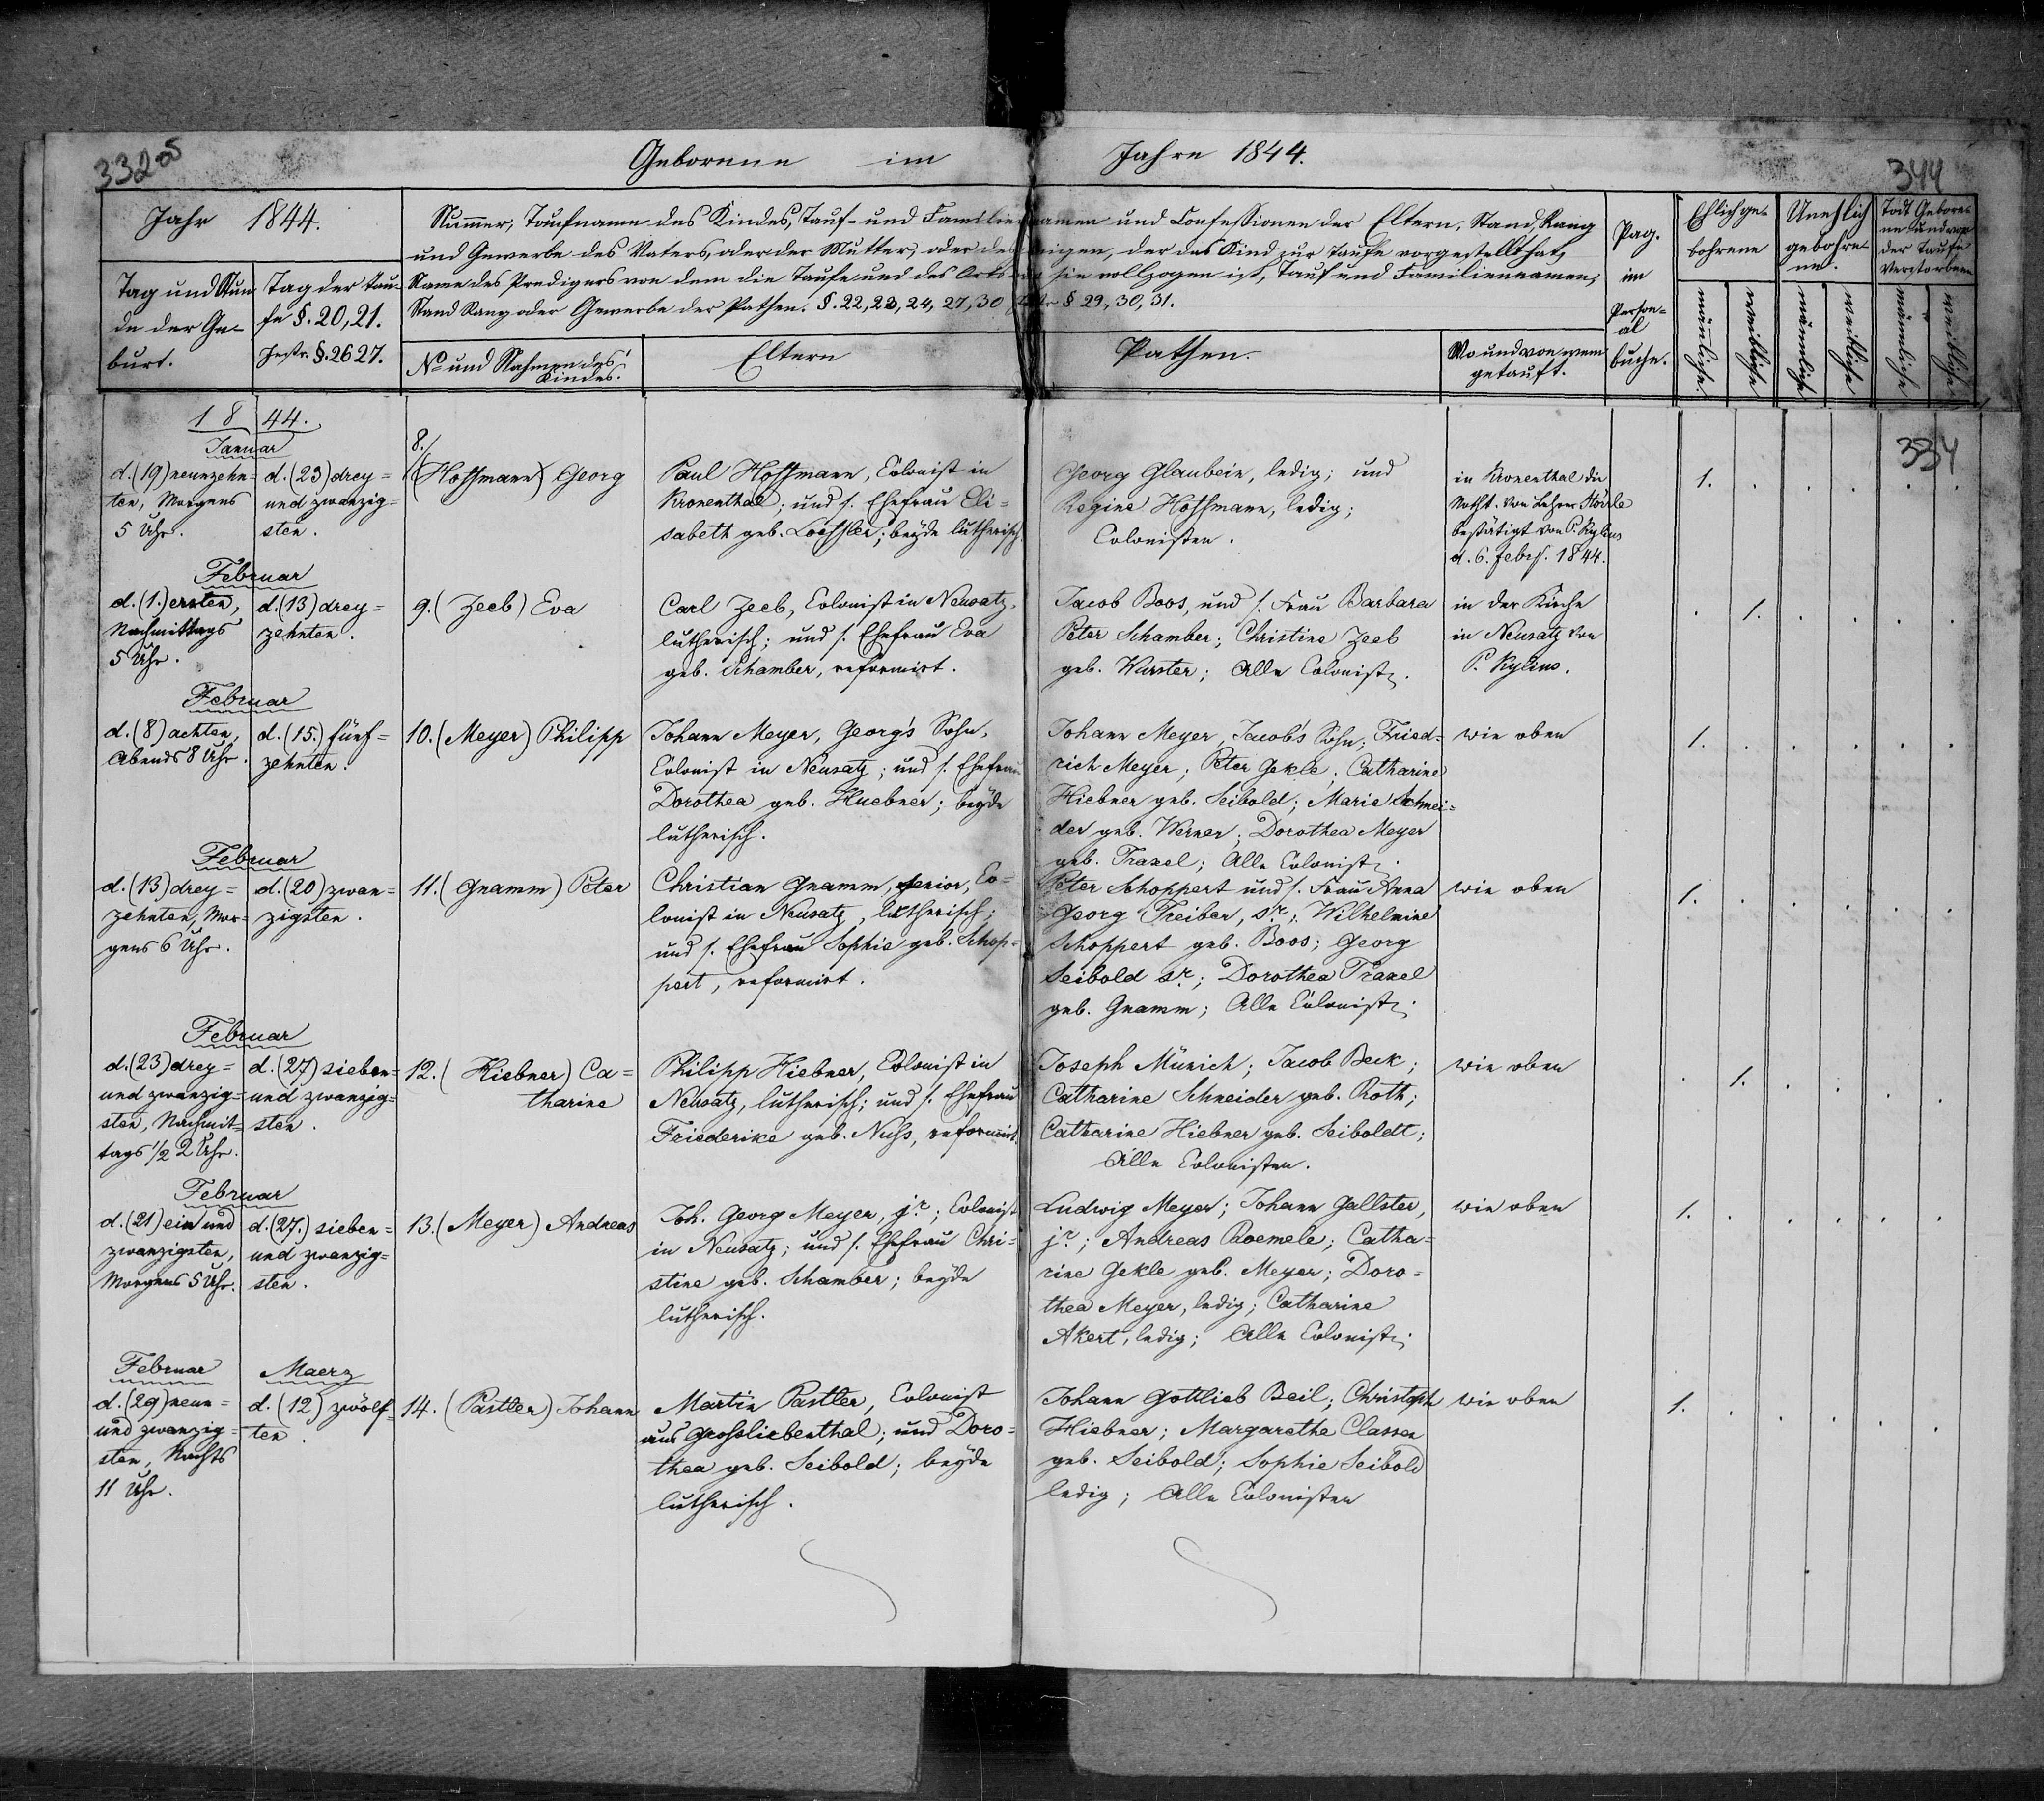 332 05
Geborene im Jahre 1844.
344
Jahr 1844.
Tag und Stun-
de der Ge-
burt.
Tag der Tau-
fe §. 20, 21.
Instr. §. 26 27.
Numer, Taufname des Kindes, Tauf- und Familiennamen und Confessionen der Eltern, Stand, Rang
und Gewerbe des Vaters, oder der Mutter, oder desjenigen, der das Kind zur Taufe vorgestellt hat,
Name des Predigers von dem die Taufe und des Orts wo sie vollzogen ist, Tauf und Familiennamen,
Stand Rang oder Gewerbe der Pathen. §. 22, 23, 24, 27, 30 § 29, 30, 31.
No und Nahmen des
Kindes.
Eltern
Pathen.
Wo und von wem
getauft.
Pag.
im
Person-
al
buche.
Ehlich ge-
bohrene
männliche.
weibliche
Unehlich
gebohre-
ne.
männliche
weibliche
Todt Gebore-
ne und vor
der Taufe
Verstorbene
männliche
weibliche
1844.
334
Januar
d. (19) neunzehn-
ten, Morgens
5 Uhr.
d. (23) drey-
und zwanzig-
sten.
8.
(Hoffmann) Georg
Paul Hoffmann, Colonist in
Kronenthal; und s. Ehefrau Eli-
sabeth geb. Loeffler; beyde lutherisch.
Georg Glaubein, ledig; und
Regine Hoffmann, ledig;
Colonisten.
in Kronenthal die
Notht. von Lehrer Hörrle
bestätigt von P. Kylius
d. 6. Febr. 1844.
1. . . . . .
Februar
d. (1.) ersten,
Nachmittags
5 Uhr.
d. (13) drey-
zehnten.
9. (Zeeb) Eva
Carl Zeeb, Colonist in Neusatz,
lutherisch; und s. Ehefrau Eva
geb. Schamber, reformirt.
Jacob Boos, und s. Frau Barbara
Peter Schamber; Christine Zeeb
geb. Wurster; Alle Colonist.
in der Kirche
in Neusatz von
P. Kylius.
. 1. . . . .
Februar
d. (8) achten,
Abends 8 Uhr.
d. (15.) fünf-
zehnten.
10. (Meyer) Philipp
Johann Meyer, Georg's Sohn,
Colonist in Neusatz; und s. Ehefrau
Dorothea geb. Huebner; beyde
lutherisch.
Johann Meyer, Jacob's Sohn; Fried-
rich Meyer; Peter Gekle; Catharine
Hiebner geb. Seibold; Marie Schnei-
der geb. Werner; Dorothea Meyer
geb. Traxel; Alle Colonist.
wie oben
1. . . . . .
Februar
d. (13) drey-
zehnten, Mor-
gens 6 Uhr.
d. (20) zwan-
zigsten.
11. (Gnamm) Peter
Christian Gnamm, senior, Co-
lonist in Neusatz, lutherisch;
und s. Ehefrau Sophie geb. Schop-
pert, reformirt.
Peter Schoppert und s. Frau Anna
Georg Treiber, sr.; Wilhelmine
Schoppert geb. Boos; Georg
Seibold sr.; Dorothea Traxel
geb. Gnamm; Alle Colonist.
wie oben
1. . . . . .
Februar
d. (23) drey-
und zwanzig-
sten, Nachmit-
tags 1/2 2 Uhr.
d. (27) sieben-
und zwanzig-
sten.
12. (Hiebner) Ca-
tharine
Philipp Hiebner, Colonist in
Neusatz, lutherisch; und s. Ehefrau
Friederike geb. Nuss, reformirt.
Joseph Münich; Jacob Beck;
Catharine Schneider geb. Roth;
Catharine Hiebner geb. Seiboldt;
Alle Colonisten.
wie oben
. 1. . . . .
Februar
d. (21) ein und
zwanzigsten,
Morgens 5 Uhr.
d. (27.) sieben-
und zwanzig-
sten.
13. (Meyer) Andreas
Joh. Georg Meyer, jr.; Colonist
in Neusatz; und s. Ehefrau Chri-
stine geb. Schamber; beyde
lutherisch.
Ludwig Meyer; Johann Gallster,
jr.; Andreas Roemele; Catha-
rine Gekle geb. Meyer; Doro-
thea Meyer, ledig; Catharine
Akert, ledig; Alle Colonist.
wie oben
1. . . . . .
Februar
d. (29) neun-
und zwanzig-
sten, Nachts
11 Uhr.
Maerz
d. (12) zwölf-
ten.
14. (Pastler) Johann
Martin Pastler, Colonist
aus Grossliebenthal; und Doro-
thea geb. Seibold; beyde
lutherisch.
Johann Gottlieb Beil; Christoph
Hiebner; Margarethe Classen
geb. Seibold; Sophie Seibold
ledig; Alle Colonisten
wie oben
1. . . . . .